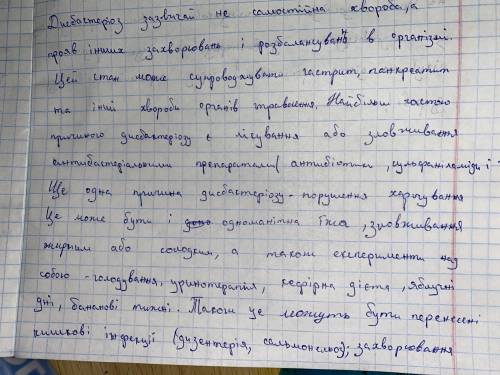 Дисбастеріоз зазвичай не самостійна хвороба, а
прояв інших захворювань і розбалансувань в організмі.
Цей стан може супроводжувати гастрит, панкреатит
та інші хвороби органів травлення. Найбільш частою
причиною дисбактеріозу є лікування або зловживання
антибактеріальними препаратами (антибіотики, сульфаніламіди і
Ще одна причина дисбактеріозу - порушення харчування
Це може бути і одноманітна їжа, зловживання
жирним або солодким, а також експерименти над
собою - голодування, уринотерапія, кефірна дієта, яблучні
дні, бананові тижні. Також це можуть бути перенесені
кишкові інфекції (дизентерія, сальмонельоз); захворювання